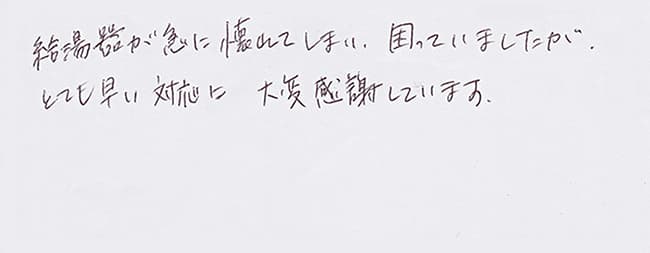 給湯器が急に壊れてしまい、困っていましたが、
とても早い対応に 大変感謝しています。